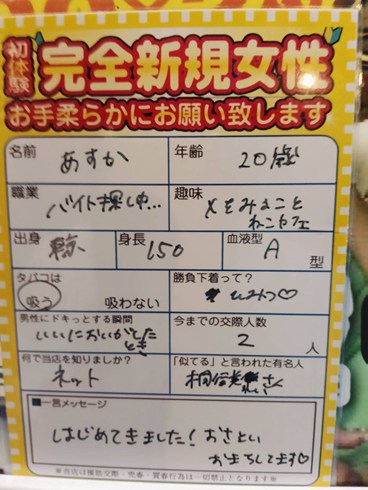 初体験
完全新規女性
お手柔らかにお願い致します
名前 あすか
年齢 20歳
職業 バイト探し中…
趣味 をみること
ねこカフェ
出身
身長 150
血液型 A 型
タバコは
吸う 吸わない
勝負下着って?
ひみつ♡
男性にドキっとする瞬間
いいにおいがしたとき
今までの交際人数
2 人
何で当店を知りましたか?
ネット
「似てる」と言われた有名人
桐谷美れいさん
■一言メッセージ
はじめてきました!おさとい
おまちしてます♡
※当店は援助交際・売春・買春行為は一切禁止となります。